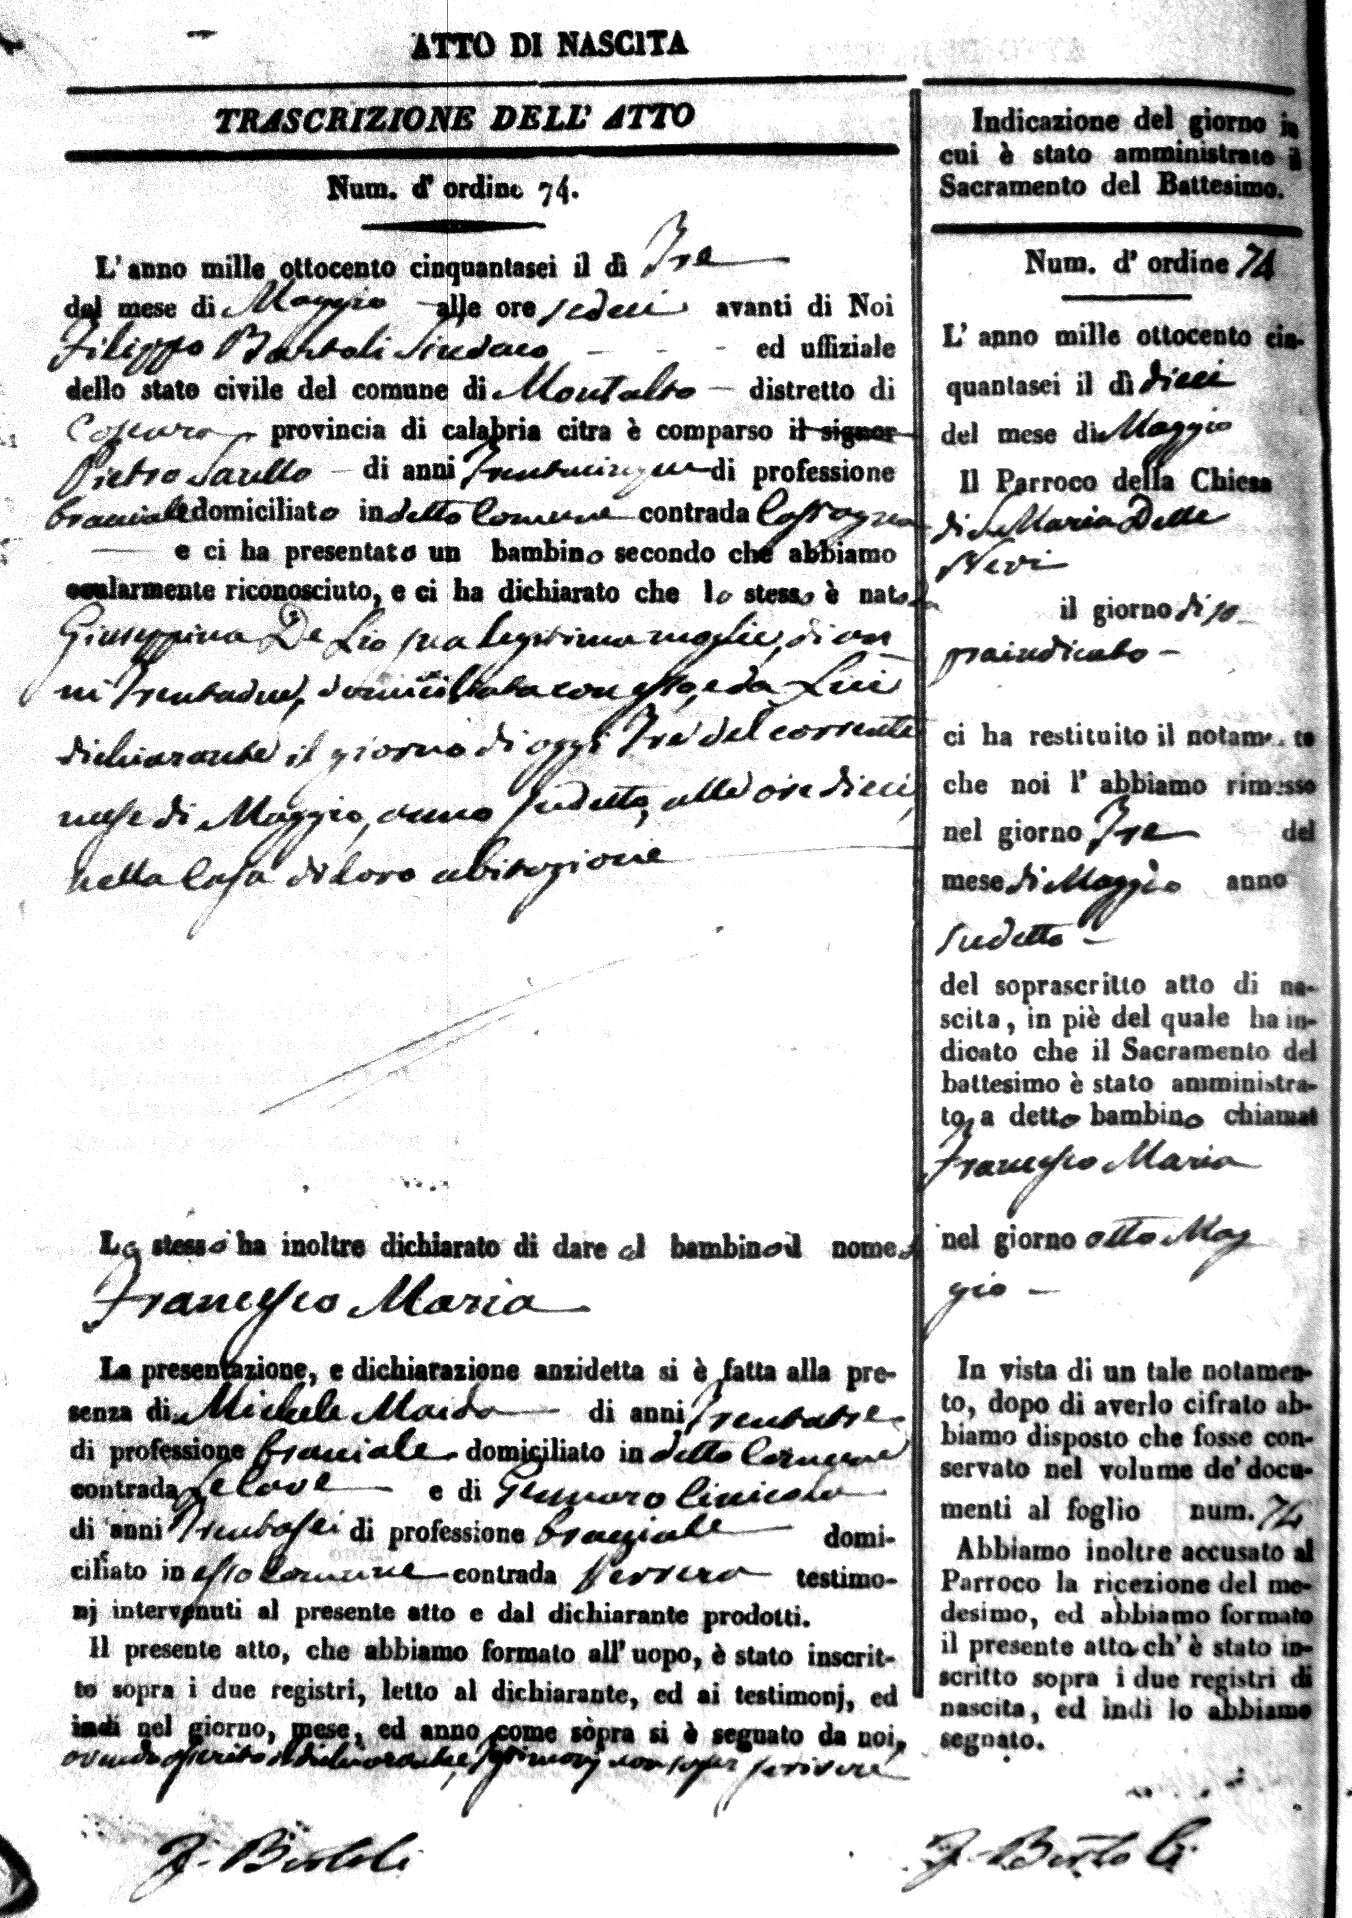 ATTO DI NASCITA
TRASCRIZIONE DELL' ATTO
Num. d' ordine 74.
L' anno mille ottocento cinquantasei il dì Tre
del mese di Maggio alle ore sedeci avanti di Noi
Filippo Bartoli Sindaco ed uffiziale
dello stato civile del comune di Montalto distretto di
Cosenza provincia di calabria citra è comparso il signor
Pietro di anni Trentacinque di professione
bracciale domiciliato in detto Comune contrada
e ci ha presentato un bambino secondo che abbiamo
ocularmente riconosciuto, e ci ha dichiarato che lo stesso è nato da
Giuseppina De Lio sua legittima moglie, di an
ni Trentadue, domiciliata con esso, e da Lui
dichiarante il giorno di oggi Tre del corrente
mese di Maggio, anno sudetto, alle ore dieci,
nella Casa di loro abitazione
Lo stesso ha inoltre dichiarato di dare al bambino il nome di
Francesco Maria
La presentazione, e dichiarazione anzidetta si è fatta alla pre-
senza di Michele di anni Trentatre
di professione bracciale domiciliato in detto Comune
contrada e di Gennaro
di anni Trentasei di professione bracciale domi-
ciliato in esso Comune contrada testimo-
nj intervenuti al presente atto e dal dichiarante prodotti.
Il presente atto, che abbiamo formato all' uopo, è stato inscrit-
to sopra i due registri, letto al dichiarante, ed ai testimonj, ed
indi nel giorno, mese, ed anno come sopra si è segnato da noi,
avendo asserito il dichiarante, testimonj non saper scrivere
F. Bartoli
Indicazione del giorno in
cui è stato amministrato il
Sacramento del Battesimo.
Num. d' ordine 74
L' anno mille ottocento cin-
quantasei il dì dieci
del mese di Maggio
Il Parroco della Chiesa
di S. Maria Delle
Nevi
il giorno di so
praindicato
ci ha restituito il notamento
che noi l' abbiamo rimesso
nel giorno Tre del
mese di Maggio anno
sudetto
del soprascritto atto di na-
scita, in piè del quale ha in-
dicato che il Sacramento del
battesimo è stato amministra-
to a detto bambino chiamat
Francesco Maria
nel giorno otto Mag
gio
In vista di un tale notamen-
to, dopo di averlo cifrato ab-
biamo disposto che fosse con-
servato nel volume de' docu-
menti al foglio num. 74
Abbiamo inoltre accusato al
Parroco la ricezione del me-
desimo, ed abbiamo formato
il presente atto ch' è stato in-
scritto sopra i due registri di
nascita, ed indi lo abbiamo
segnato.
F. Bartoli